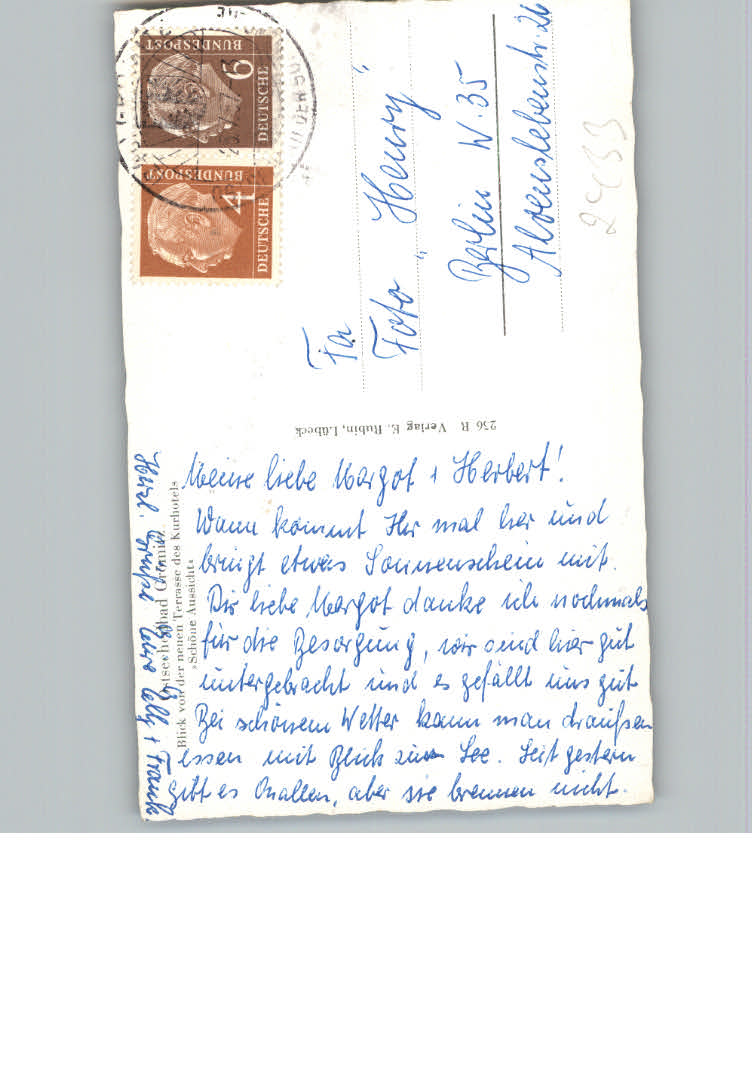 Meine liebe Margot + Herbert!
Wann kommt Ihr mal her und
bringt etwas Sonnenschein mit.
Dir liebe Margot danke ich nochmals
für die Besorgung, wir sind hier gut
untergebracht und es gefällt uns gut
Bei schönem Wetter kann man draußen
essen mit Blick zur See. Seit gestern
gibt es Quallen, aber sie brennen nicht.
Herzl. Grüße Eure Elly + Frank
Ostseeheilbad Grömitz
Blick von der neuen Terrasse des Kurhotels
»Schöne Aussicht«
236 R Verlag E. Rubin, Lübeck
Fa
Foto "Henry"
Berlin W. 35
Alvenslebenstr. 26
2433
DEUTSCHE
BUNDESPOST
6
DEUTSCHE
BUNDESPOST
4